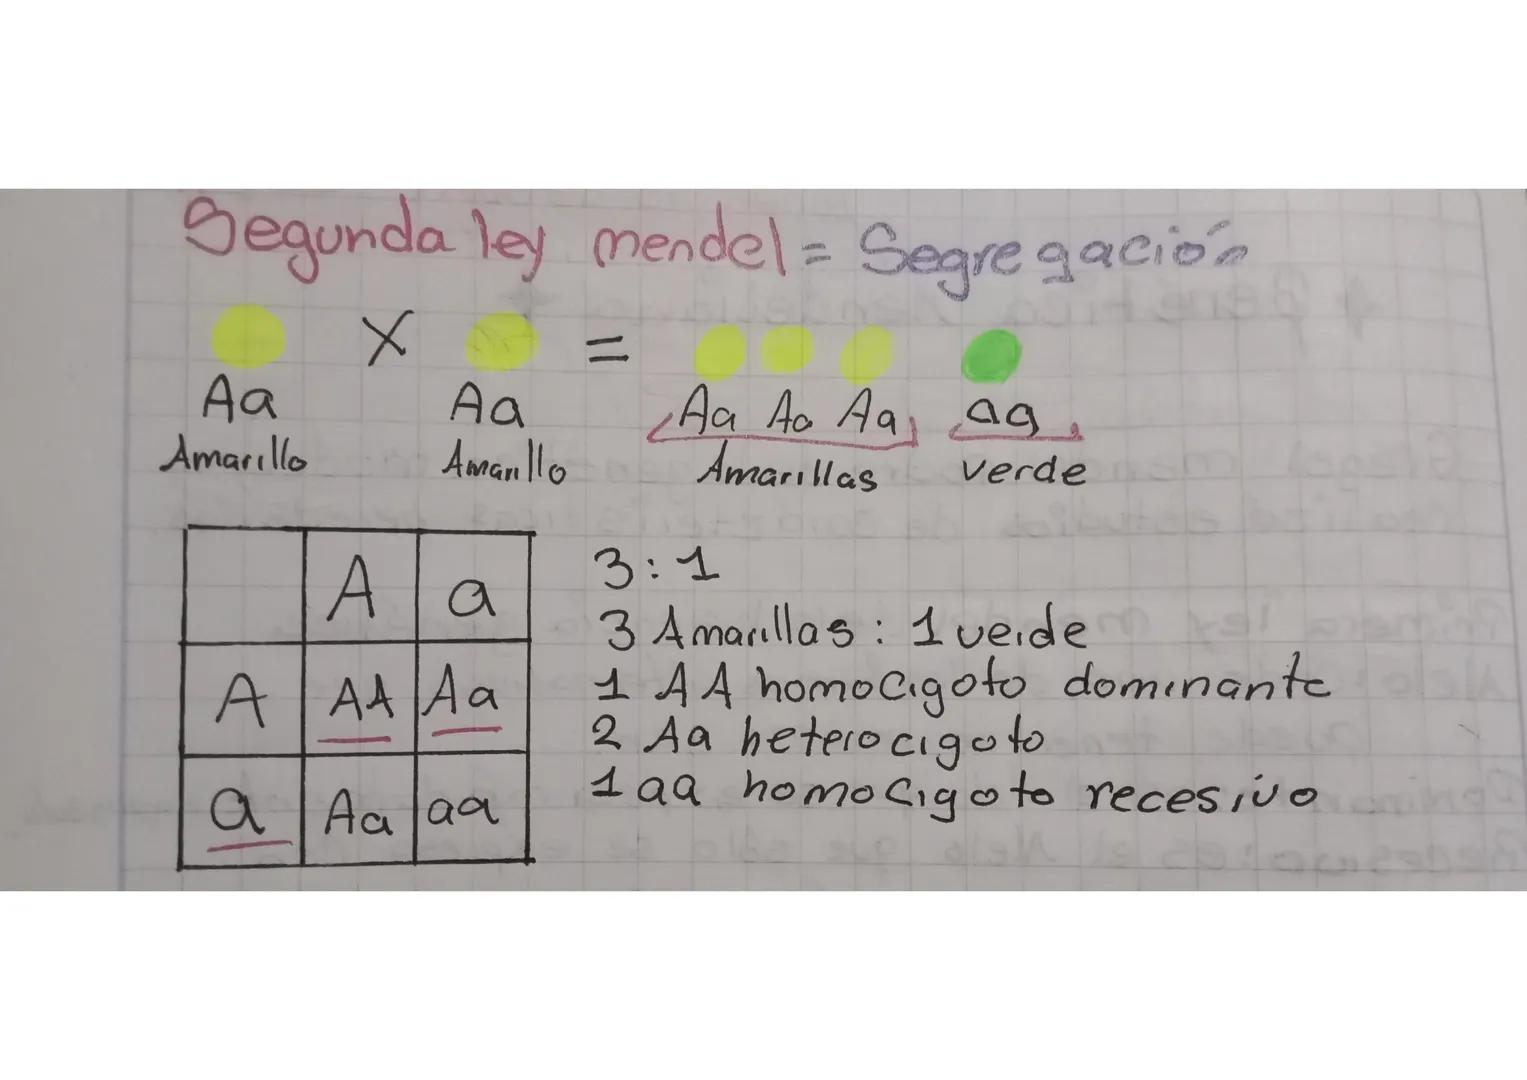 Segunda ley mendel = Segregación
X =
Aa Aa Aa Aa Aa aa
Amarillo Amarillo Amarillas verde
A a
A AA Aa
a Aa aa
3:1
3 Amarillas : 1 verde
1 AA homocigoto dominante
2 Aa heterocigoto
1 aa homocigoto recesivo